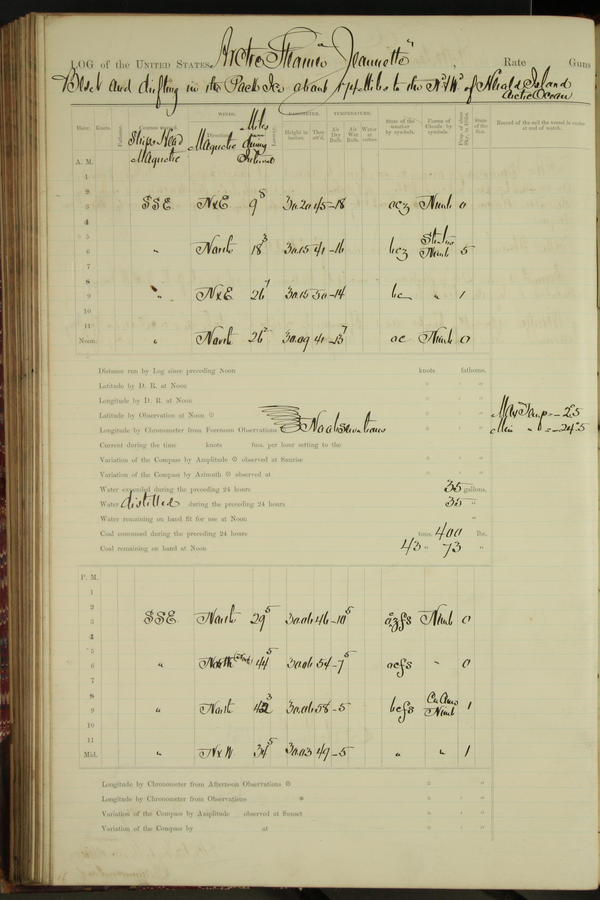 LOG of the UNITED STATES Arctic Steamer "Jeannette" Rate Guns
Beset and drifting in the Pack Ice about 174 Miles to the Nd & Wd of Herald Island
Arctic Ocean
WINDS. Miles BAROMETER. TEMPERATURE.
Hour. Knots. Fathoms. Ship's Head Magnetic Direction Magnetic during Interval Height in inches. Ther. att'd. Air Dry Bulb. Air Wet Bulb. Water at surface. State of the weather by symbols. Forms of Clouds by symbols. State of the Sea. Record of the sail the vessel is under at end of watch.
A. M.
1
2
3 SSE N×E 9 8 30.20 45 -18 Nimb 0
4
5
6 " North 18 3 30.15 41 -16 Stratus Nimb 5
7
8
9 " N×E 26 7 30.15 50 -14 bc " 1
10
11
Noon. " North 26 30.09 41 -13 7 oc Nimb 0
Distance run by Log since preceding Noon knots fathoms.
Latitude by D. R. at Noon ° ' "
Longitude by D. R. at Noon ° ' "
Latitude by Observation at Noon ° ' " Max Temp = -2.5
Longitude by Chronometer from Forenoon Observations No observations Min " = -24.5
Current during the time knots fms. per hour setting to the
Variation of the Compass by Amplitude observed at Sunrise ° ' "
Variation of the Compass by Azimuth observed at ° ' "
Water expended during the preceding 24 hours 35 gallons.
Water distilled during the preceding 24 hours 35 "
Water remaining on hand fit for use at Noon "
Coal consumed during the preceding 24 hours tons. 400 lbs.
Coal remaining on hand at Noon 43 " 73 "
P. M.
1
2
3 SSE North 29 5 30.06 46 -10 5 Nimb 0
4
5
6 " 44 5 30.06 54 -7 5 " 0
7
8
9 " North 42 3 30.06 58 -5 Nimb 1
10
11
Mid. " N×W 34 5 30.03 49 -5 " " 1
Longitude by Chronometer from Afternoon Observations ° ' "
Longitude by Chronometer from Observations ° ' "
Variation of the Compass by Amplitude observed at Sunset ° ' "
Variation of the Compass by at ° ' "